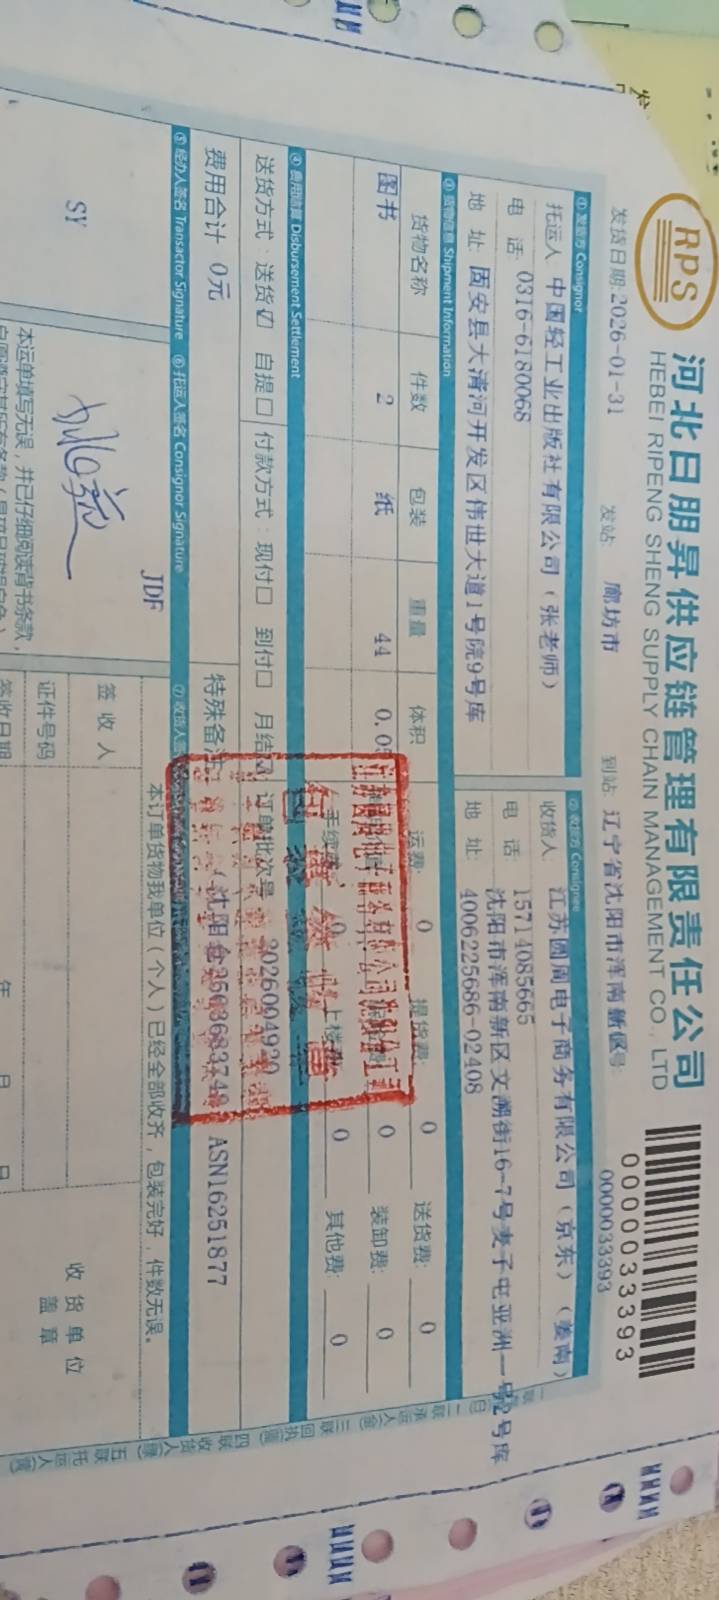 RPS
河北日朋昇供应链管理有限责任公司
HEBEI RIPENG SHENG SUPPLY CHAIN MANAGEMENT CO., LTD
0000033393
发货日期:2026-01-31 发站: 廊坊市 到站: 辽宁省沈阳市浑南新区 0000033393
① 发货方 Consignor ② 收货方 Consignee
托运人 中国轻工业出版社有限公司（张老师）
电 话: 0316-6180068
地 址: 固安县大清河开发区伟世大道1号院9号库
收货人: 江苏圆周电子商务有限公司（京东）（姜南）
电 话: 15714085665
地 址: 沈阳市浑南新区文溯街16-7号麦子屯亚洲一号2号库
4006225686-02408
③ 货物信息 Shipment Information
货物名称 件数 包装 重量 体积 运费: 0 提货费: 0 送货费: 0
图书 2 纸 44 0.0 0 装卸费: 0
手续费: 0 上楼费: 0 其他费: 0
④ 费用结算 Disbursement Settlement
送货方式: 送货☑ 自提☐ 付款方式: 现付☐ 到付☐ 月结☑ 订单批次号 2026004920
费用合计 0元 特殊备注: (沈阳仓3503683749 ASN16251877
⑤ 经办人签名 Transactor Signature ⑥ 托运人签名 Consignor Signature ⑦ 收货人签
SY
JDF
本运单填写无误，并已仔细阅读背书条款，
本订单货物我单位（个人）已经全部收齐，包装完好，件数无误。
签收人
证件号码
签收日期 年 月 日
收货单位
盖章